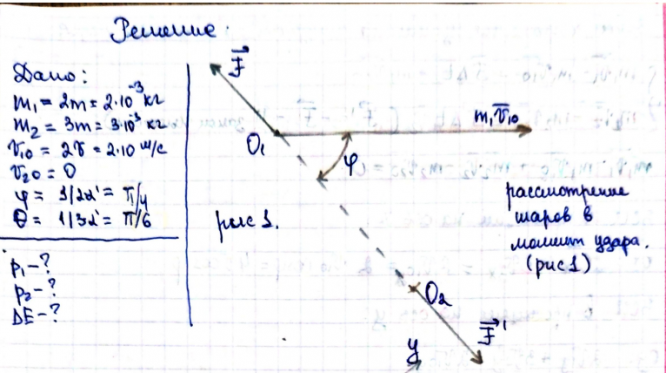 Решение.
Дано:
m₁ = 2m = 2·10⁻³ кг
m₂ = 3m = 3·10⁻³ кг
v₁₀ = 2v = 2·10 м/с
v₂₀ = 0
φ = 1/2α = π/4
θ = 1/3α = π/6
p₁ - ?
p₂ - ?
ΔE - ?
F⃗
O₁
m₁v̅₁₀
φ
рис 1.
рассмотрение
шаров в
момент удара.
(рис 1)
O₂
F⃗'
y